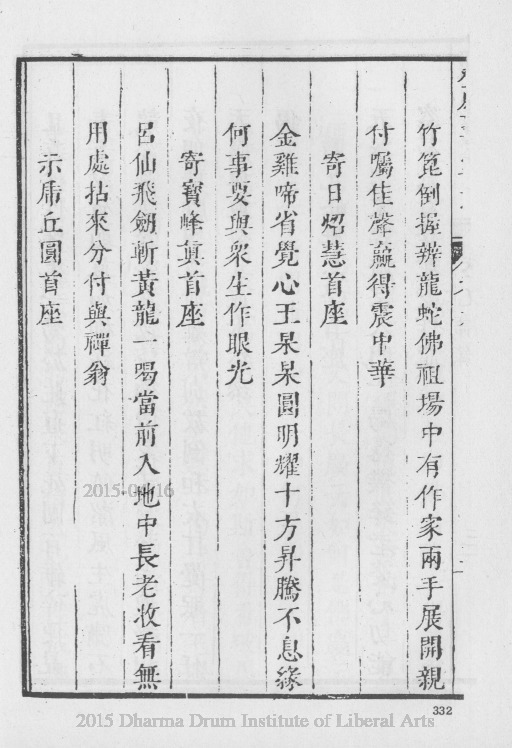 竹篦倒握辨龍蛇佛祖場中有作家兩手展開親
付囑佳聲贏得震中華
寄日炤慧首座
金雞啼省覺心王杲杲圓明耀十方昇騰不息緣
何事要與衆生作眼光
寄寶峰眞首座
呂仙飛劒斬黃龍一喝當前入地中長老收看無
用處拈來分付與禪翁
示乕丘圓首座
332
2015 Dharma Drum Institute of Liberal Arts